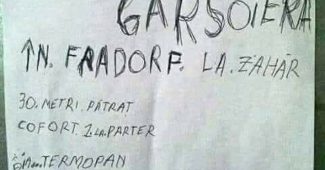 GARSOIERA
ÎN. FRADORF. LA. ZAHĂR
30. METRI. PĂTRAȚ
COFORT. 1 LA. PARTER
TERMOPAN